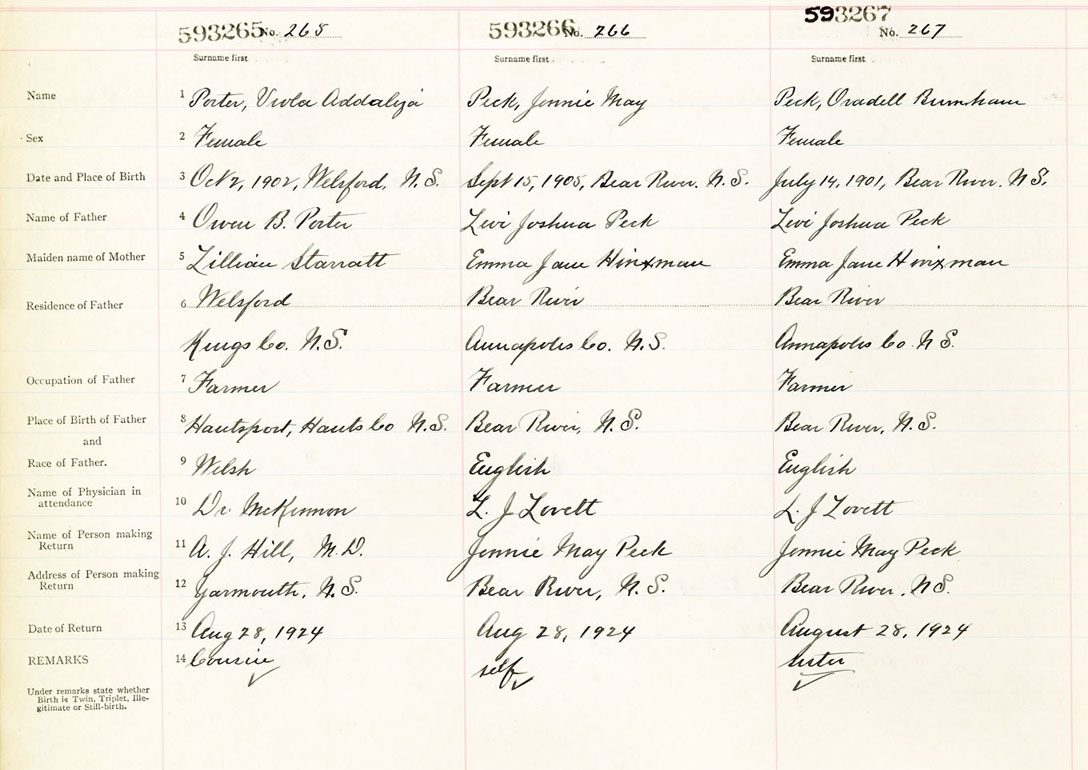 593265 No. 265
593266 No. 266
593267
No. 267
Surname first
Surname first
Surname first
Name 1 Porter, Viola Addaliza Peck, Jennie May Peck, Oradell Burnham
Sex 2 Female Female Female
Date and Place of Birth 3 Oct 2, 1902, Welsford, N.S. Sept 15, 1905, Bear River, N.S. July 14, 1901, Bear River, N.S.
Name of Father 4 Owen B. Porter Levi Joshua Peck Levi Joshua Peck
Maiden name of Mother 5 Lillian Starratt Emma Jane Hinxman Emma Jane Hinxman
Residence of Father 6 Welsford Bear River Bear River
Kings Co. N.S. Annapolis Co. N.S. Annapolis Co. N.S.
Occupation of Father 7 Farmer Farmer Farmer
Place of Birth of Father 8 Hantsport, Hants Co N.S. Bear River, N.S. Bear River, N.S.
and
Race of Father. 9 Welsh English English
Name of Physician in
attendance 10 Dr. McKinnon L. J Lovett L. J Lovett
Name of Person making
Return 11 A. J. Hill, M.D. Jennie May Peck Jennie May Peck
Address of Person making
Return 12 Yarmouth, N.S. Bear River, N.S. Bear River, N.S.
Date of Return 13 Aug 28, 1924 Aug 28, 1924 August 28, 1924
REMARKS 14 Cousin self sister
Under remarks state whether
Birth is Twin, Triplet, Ille-
gitimate or Still-birth.